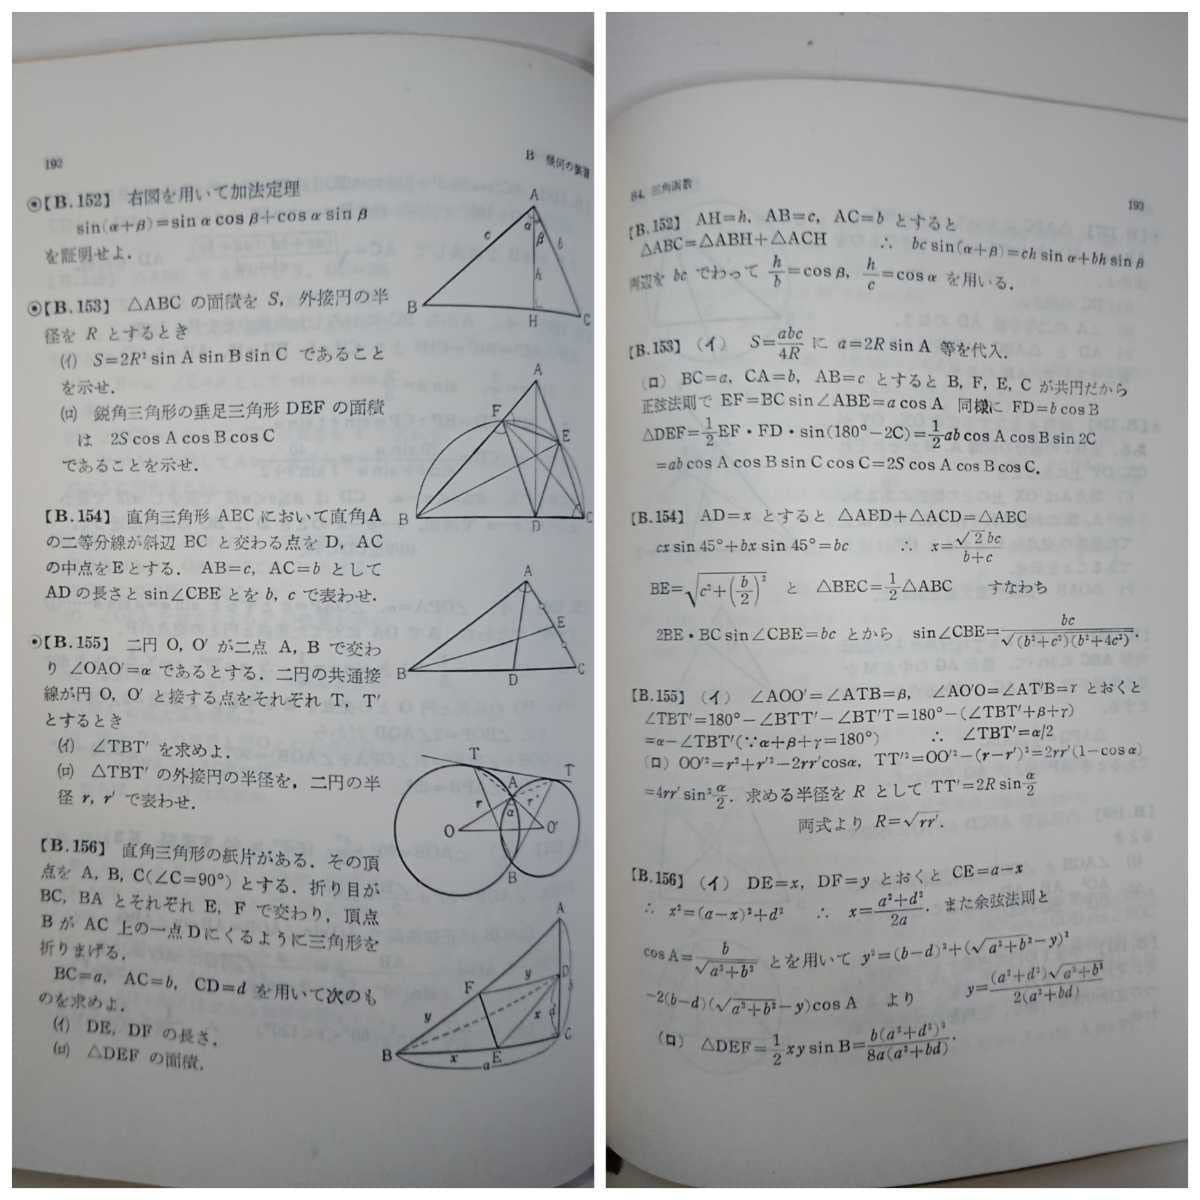 192
B 幾何の演習
【B.152】 右図を用いて加法定理
sin(α+β)=sin α cos β+cos α sin β
を証明せよ．
【B.153】 △ABC の面積を S, 外接円の半
径を R とするとき
(イ) S=2R² sin A sin B sin C であること
を示せ．
(ロ) 鋭角三角形の垂足三角形 DEF の面積
は 2S cos A cos B cos C
であることを示せ．
【B.154】 直角三角形 ABC において直角A
の二等分線が斜辺 BC と交わる点を D, AC
の中点をEとする． AB=c, AC=b として
AD の長さと sin∠CBE とを b, c で表わせ．
【B.155】 二円 O, O′ が二点 A, B で交わ
り ∠OAO′=α であるとする．二円の共通接
線が円 O, O′ と接する点をそれぞれ T, T′
とするとき
(イ) ∠TBT′ を求めよ．
(ロ) △TBT′ の外接円の半径を，二円の半
径 r, r′ で表わせ．
【B.156】 直角三角形の紙片がある．その頂
点を A, B, C(∠C=90°) とする．折り目が
BC, BA とそれぞれ E, F で交わり，頂点
B が AC 上の一点Dにくるように三角形を
折りまげる．
BC=a, AC=b, CD=d を用いて次のも
のを求めよ．
(イ) DE, DF の長さ．
(ロ) △DEF の面積．
A
α
β
c
b
h
B
H
C
A
F
E
B
D
C
A
E
B
D
C
T
A
T′
r
α
r′
O
O′
B
A
D
b
F
y
y
x
d
C
B
x
E
a
84. 三角函数
193
【B.152】 AH=h, AB=c, AC=b とすると
△ABC=△ABH+△ACH ∴ bc sin(α+β)=ch sin α+bh sin β
両辺を bc でわって h/b=cos β, h/c=cos α を用いる．
【B.153】 (イ) S=abc/4R に a=2R sin A 等を代入．
(ロ) BC=a, CA=b, AB=c とすると B, F, E, C が共円だから
正弦法則で EF=BC sin∠ABE=a cos A 同様に FD=b cos B
△DEF=1/2 EF・FD・sin(180°−2C)=1/2 ab cos A cos B sin 2C
=ab cos A cos B sin C cos C=2S cos A cos B cos C.
【B.154】 AD=x とすると △ABD+△ACD=△ABC
cx sin 45°+bx sin 45°=bc ∴ x=√2 bc/(b+c)
BE=√(c²+(b/2)²) と △BEC=1/2△ABC すなわち
2BE・BC sin∠CBE=bc とから sin∠CBE=bc/√((b²+c²)(b²+4c²)).
【B.155】 (イ) ∠AOO′=∠ATB=β, ∠AO′O=∠AT′B=γ とおくと
∠TBT′=180°−∠BTT′−∠BT′T=180°−(∠TBT′+β+γ)
=α−∠TBT′(∵α+β+γ=180°) ∴ ∠TBT′=α/2
(ロ) OO′²=r²+r′²−2rr′cosα, TT′²=OO′²−(r−r′)²=2rr′(1−cos α)
=4rr′ sin² α/2. 求める半径を R として TT′=2R sin α/2
両式より R=√rr′.
【B.156】 (イ) DE=x, DF=y とおくと CE=a−x
∴ x²=(a−x)²+d² ∴ x=(a²+d²)/2a. また余弦法則と
cos A=b/√(a²+b²) とを用いて y²=(b−d)²+(√(a²+b²)−y)²
−2(b−d)(√(a²+b²)−y)cos A より y=(a²+d²)√(a²+b²)/2(a²+bd)
(ロ) △DEF=1/2 xy sin B=b(a²+d²)²/8a(a²+bd).